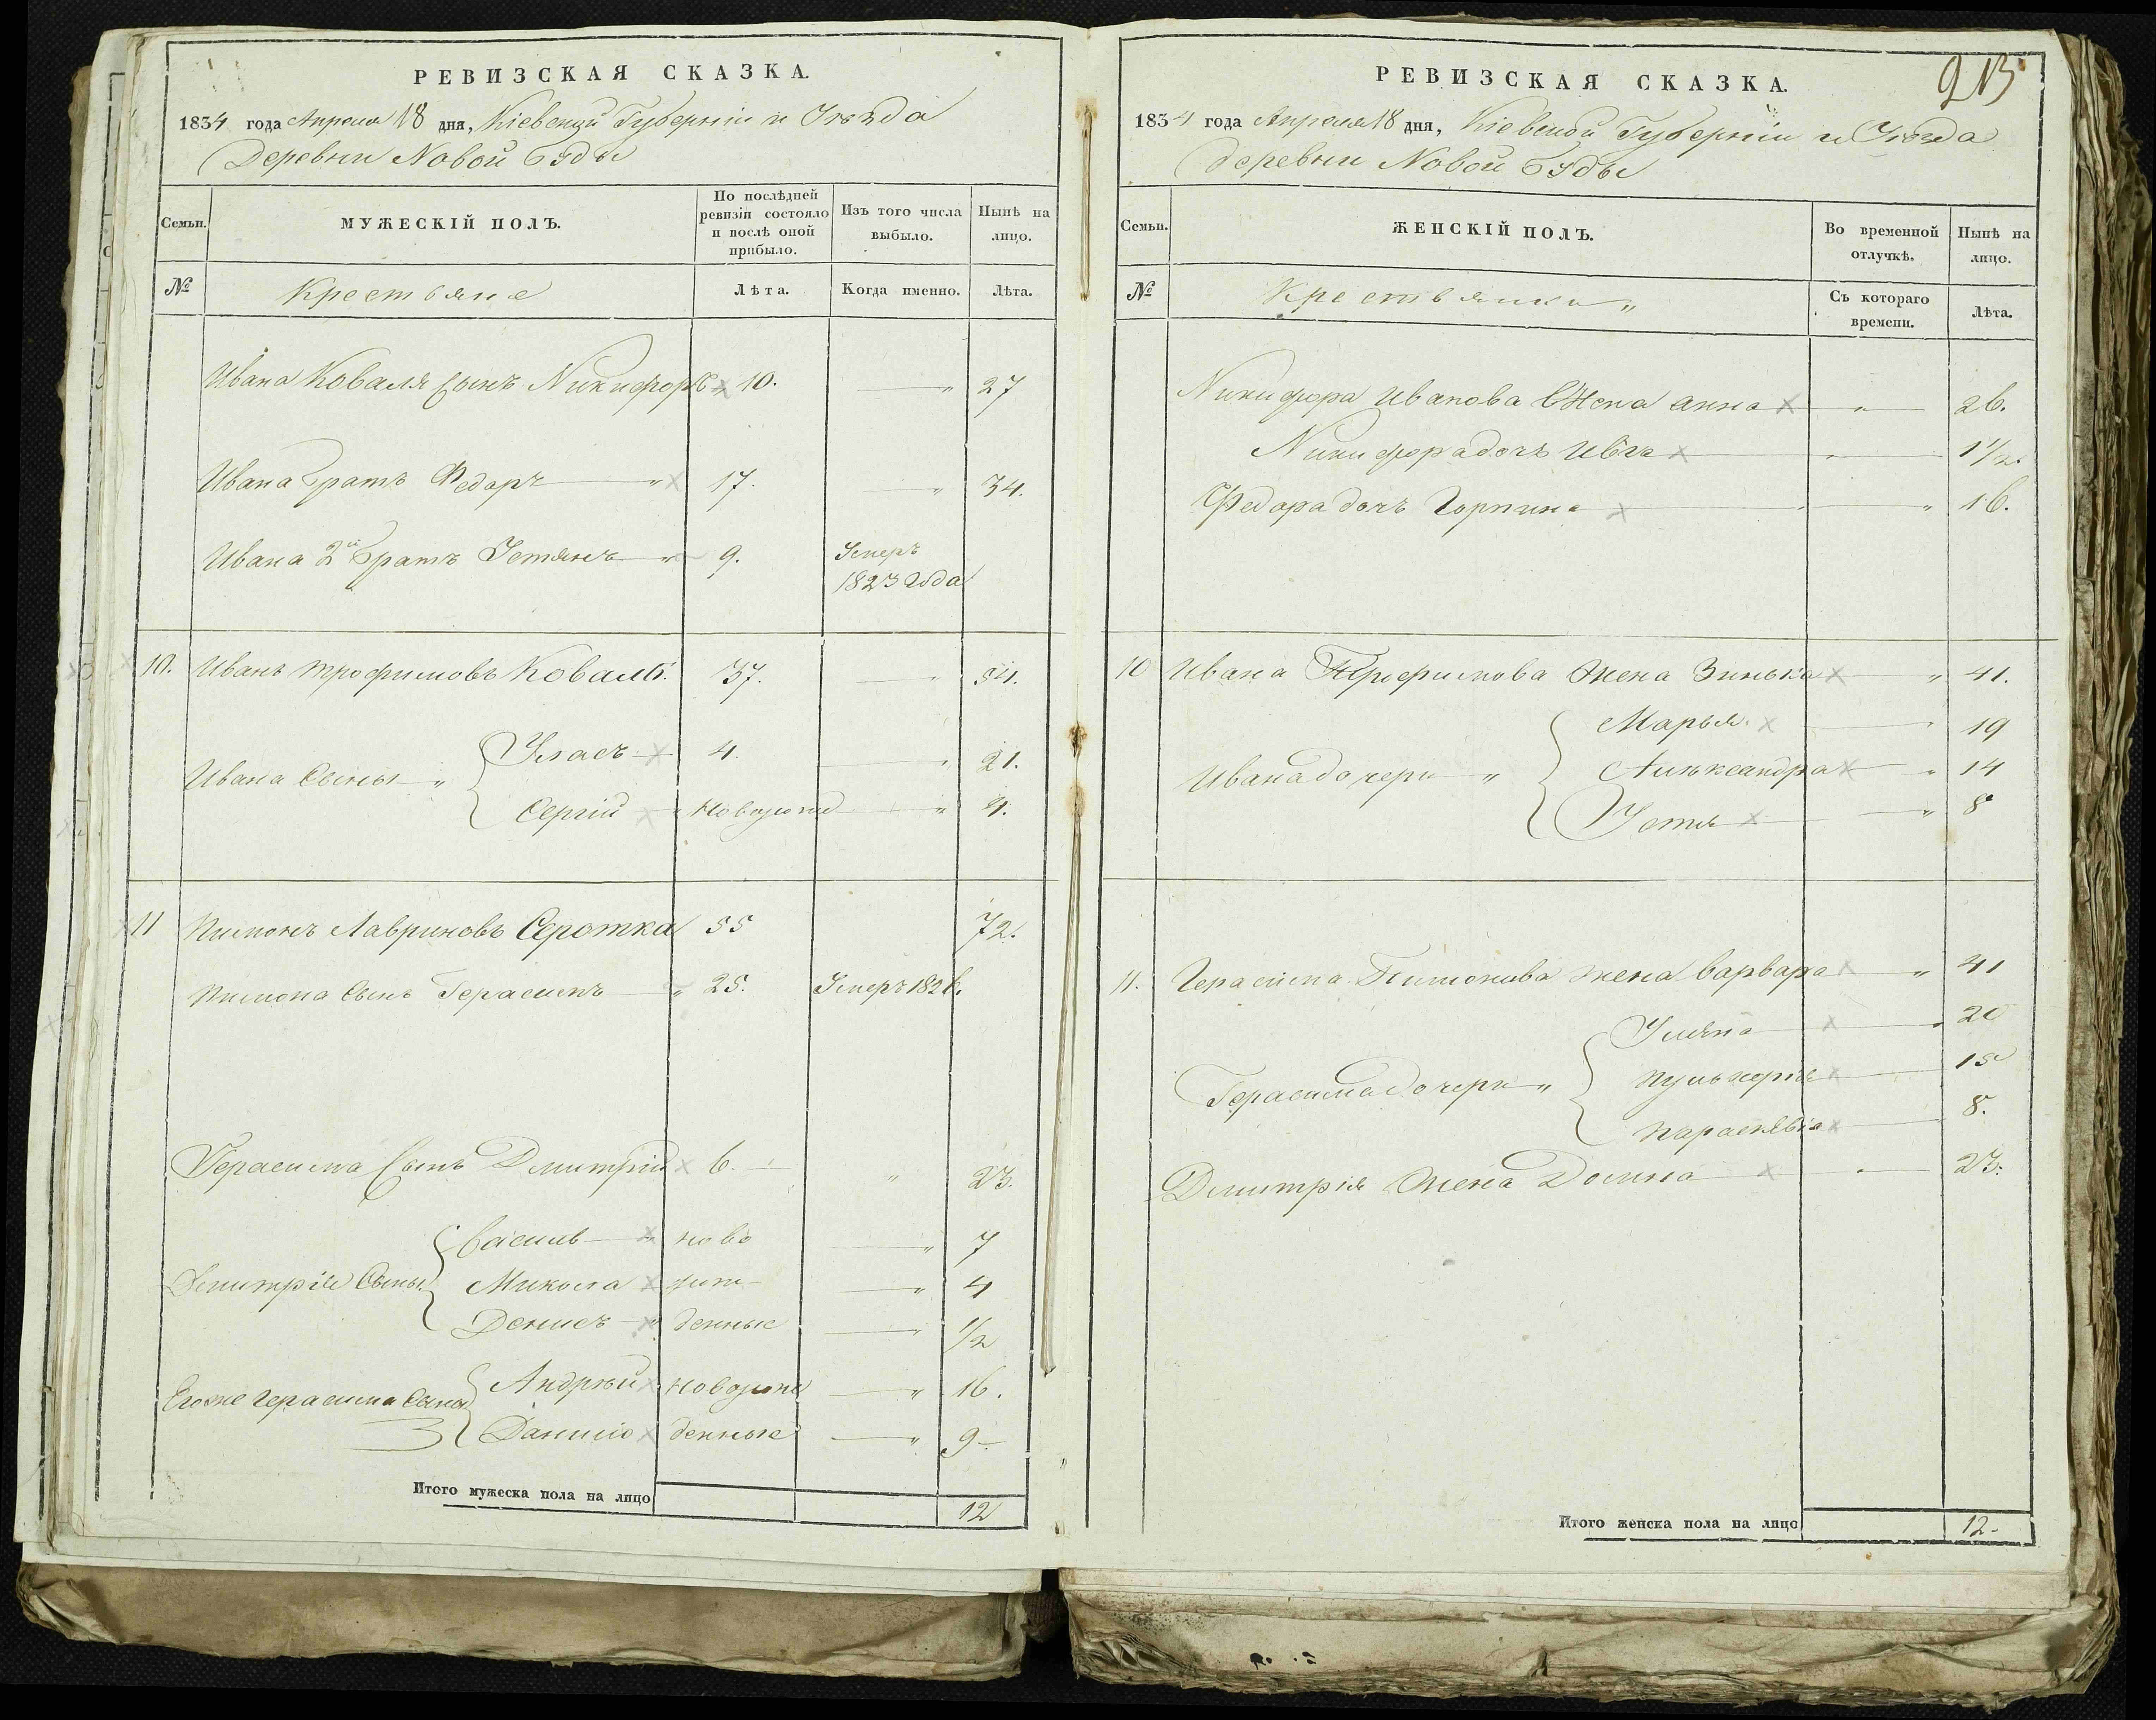 РЕВИЗСКАЯ СКАЗКА.
1834 года Апреля 18 дня, Кіевской Губерніи и Уезда
Деревни Новой Буды
Семьи. МУЖЕСКІЙ ПОЛЪ. По послѣдней ревизіи состояло и послѣ оной прибыло. Изъ того числа выбыло. Нынѣ на лицо.
№ Крестьяне Лѣта. Когда именно. Лѣта.
Ивана Коваля Сынъ Никифоръ 10. 27
Ивана Братъ Федоръ 17. 34.
Ивана 2й Братъ Устянъ 9. Умеръ
1823 Года
10. Иванъ Трофимовъ Коваль. 37. 54.
Ивана Сыны
Уласъ 4. 21.
Сергій Новорожд 4.
11 Пимонъ Лавриновъ Серотка 55 72.
Пимона Сынъ Герасимъ 25. Умеръ 1826.
Герасима Сынъ Дмитрій 6. 23.
Дмитрія Сыны
Василь ново 7
Микола рож- 4
Денисъ денные 1/2
Егоже Герасима Сыны
Андрѣй Новорож 16.
Данило денные 9-
Итого мужеска пола на лицо 12
213
РЕВИЗСКАЯ СКАЗКА.
1834 года Апреля 18 дня, Кіевской Губерніи и Уѣзда
деревни Новой Буды
Семьи. ЖЕНСКІЙ ПОЛЪ. Во временной отлучкѣ. Нынѣ на лицо.
№ Крестьянки Съ котораго времени. Лѣта.
Никифора Иванова Жена Анна 26.
Никифора дочь Ивга 1 1/2.
Федора дочь Горпина 16.
10 Ивана Трофимова Жена Зинька 41.
Ивана дочери
Марья 19
Алѣксандра 14
Устя 8
11. Герасима Пимонова жена Варвара 41
Герасима дочери
Уляна 20
Пульхерія 15
Параскѣвія 8.
Дмитрія Жена Домна 23.
Итого женска пола на лицо 12-